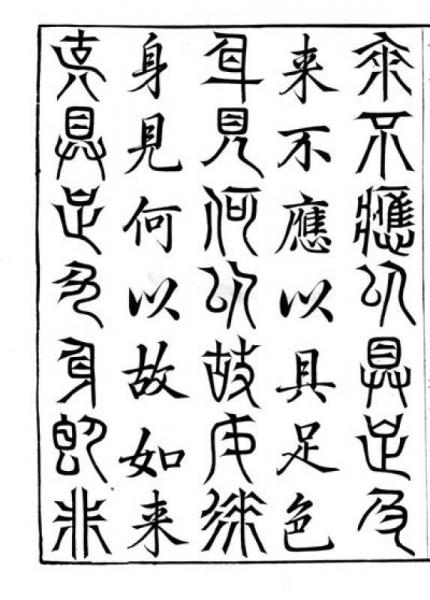 来不應以具足色
来不應以具足色
身見何以故如来
身見何以故如来
具足色身即非